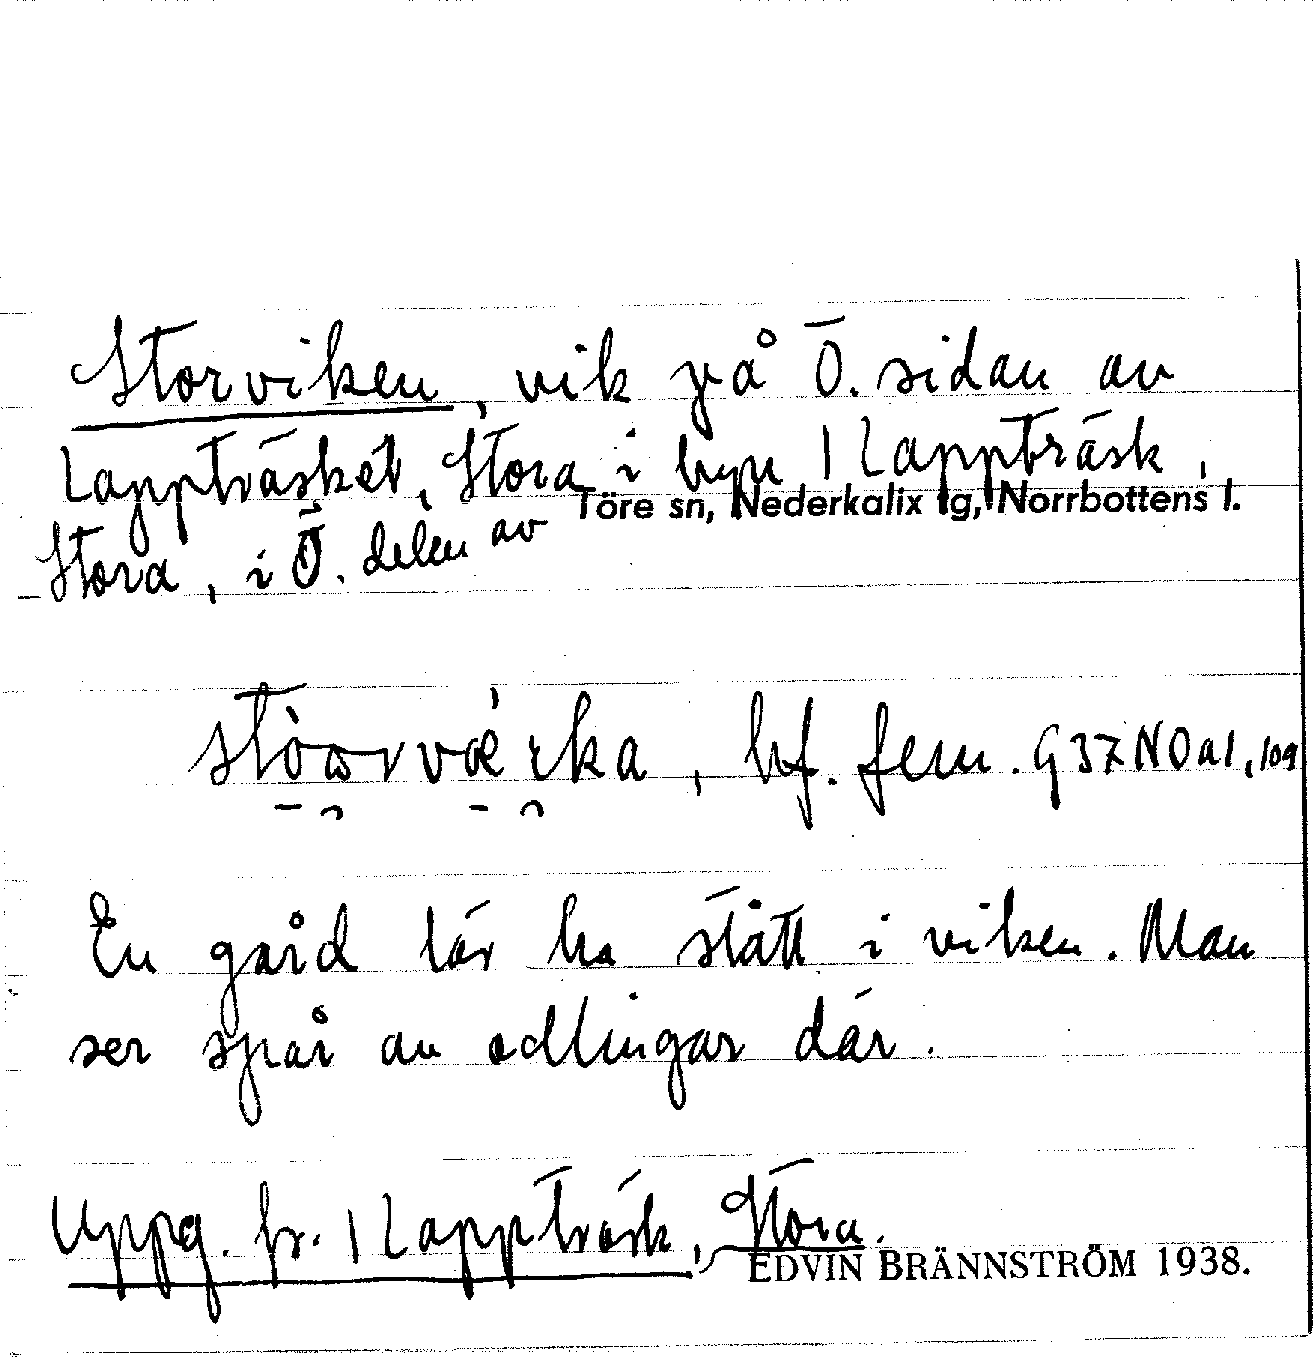 Storviken, vik på Ö. sidan av
Lappträsket, Stora i byn 1 Lappträsk,
Töre sn, Nederkalix tg, Norrbottens l.
Stora, i Ö. delen av
bf. fem. G37NOa1,109
En gård lär ha stått i viken. Man
ser spår av odlingar där.
Uppg. fr. 1 Lappträsk, Stora.
EDVIN BRÄNNSTRÖM 1938.